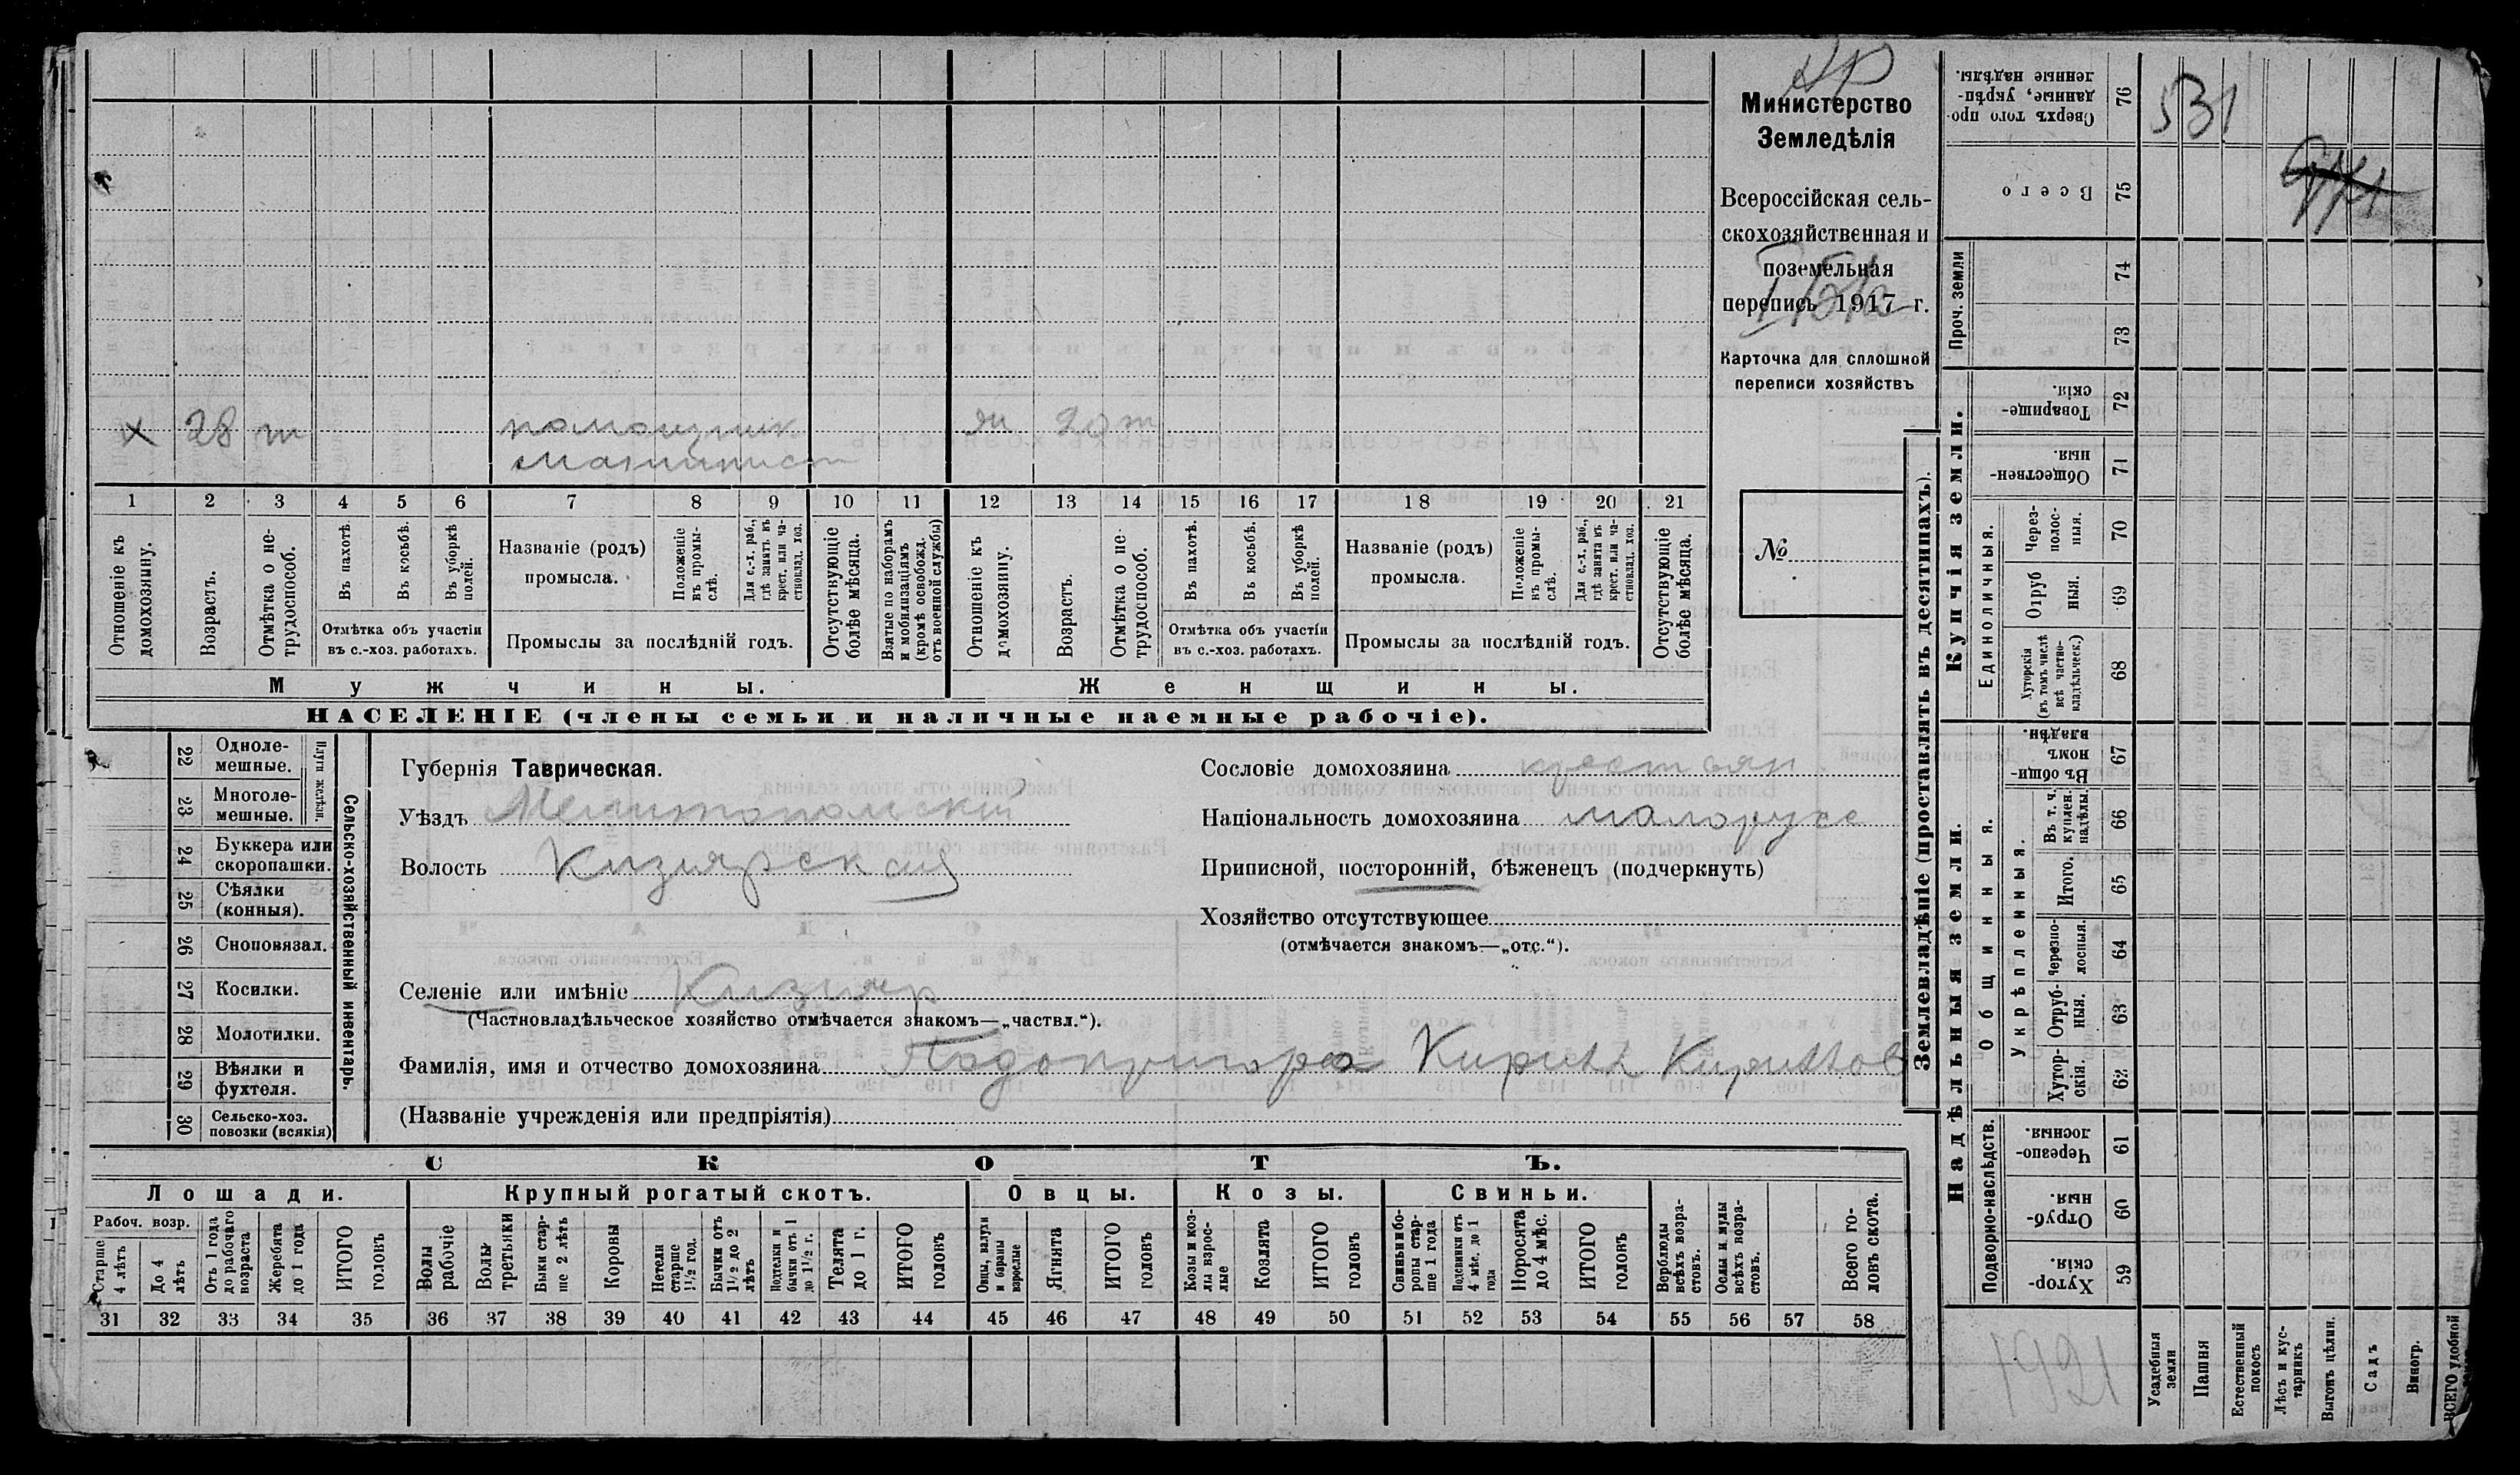 Министерство
Земледѣлія
Всероссійская сель-
скохозяйственная и
поземельная
перепись 1917 г.
Карточка для сплошной
переписи хозяйствъ
№
х 28 т
помощник
машинист
ж 20 т
1 2 3 4 5 6 7 8 9 10 11 12 13 14 15 16 17 18 19 20 21
Отношеніе къ домохозяину.
Возрастъ.
Отмѣтка о не-трудоспособ.
Въ пахотѣ.
Въ косьбѣ.
Въ уборкѣ полей.
Отмѣтка объ участіи
въ с.-хоз. работахъ.
Названіе (родъ)
промысла.
Положеніе въ промы-слѣ.
Для с.-х. раб., гдѣ занятъ въ крест. или ча-стновлад. хоз.
Промыслы за послѣдній годъ.
Отсутствующіе болѣе мѣсяца.
Взятые по наборамъ и мобилизаціямъ (кромѣ освобожд. отъ военной службы)
Отношеніе къ домохозяину.
Возрастъ.
Отмѣтка о не-трудоспособ.
Въ пахотѣ.
Въ косьбѣ.
Въ уборкѣ полей.
Отмѣтка объ участіи
въ с.-хоз. работахъ.
Названіе (родъ)
промысла.
Положеніе въ промы-слѣ.
Для с.-х. раб., гдѣ занята въ крест. или ча-стновлад. хоз.
Промыслы за послѣдній годъ.
Отсутствующіе болѣе мѣсяца.
Мужчины.
Женщины.
НАСЕЛЕНІЕ (члены семьи и наличные наемные рабочіе).
Сельско-хозяйственный инвентарь.
Плуги желѣзн.
22 Одноле-мешные.
23 Многоле-мешные.
24 Буккера или скоропашки.
25 Сѣялки (конныя).
26 Сноповязал.
27 Косилки.
28 Молотилки.
29 Вѣялки и фухтеля.
30 Сельско-хоз. повозки (всякія)
Губернія Таврическая.
Уѣздъ Мелитопольскій
Волость Кизиярская
Селеніе или имѣніе Кизияр
(Частновладѣльческое хозяйство отмѣчается знакомъ—„частвл.“).
Фамилія, имя и отчество домохозяина Подопригора Кирилл Кириллов
(Названіе учрежденія или предпріятія)
Сословіе домохозяина крестьян
Національность домохозяина малорусс
Приписной, посторонній, бѣженецъ (подчеркнуть)
Хозяйство отсутствующее
(отмѣчается знакомъ—„отс.“).
СКОТЪ.
Лошади.
Рабоч. возр.
Старше 4 лѣтъ
До 4 лѣтъ
Отъ 1 года до рабочаго возраста
Жеребята до 1 года
ИТОГО головъ
Крупный рогатый скотъ.
Волы рабочіе
Волы третьяки
Быки стар-ше 2 лѣтъ
Коровы
Нетели старше 1½ год.
Бычки отъ 1½ до 2 лѣтъ
Подтелки и бычки отъ 1 до 1½ г.
Телята до 1 г.
ИТОГО головъ
Овцы.
Овцы, валухи и бараны взрослые
Ягнята
ИТОГО головъ
Козы.
Козы и коз-лы взрос-лые
Козлята
ИТОГО головъ
Свиньи.
Свиньи и бо-ровы стар-ше 1 года
Подсвинки отъ 4 мѣс. до 1 года
Поросята до 4 мѣс.
ИТОГО головъ
Верблюды всѣхъ возра-стовъ.
Ослы и мулы всѣхъ возра-стовъ.
Всего го-ловъ скота.
31 32 33 34 35 36 37 38 39 40 41 42 43 44 45 46 47 48 49 50 51 52 53 54 55 56 57 58
Землевладѣніе (проставлять въ десятинахъ).
Купчія земли.
Надѣльныя земли.
Сверхъ того про-данные, укрѣп-ленные надѣлы. 76
531
Всего 75
Проч. земли
74
73
Товарище-скія. 72
Обществен-ныя. 71
Единоличныя.
Через-полос-ныя. 70
Отруб-ныя. 69
Хуторскія (въ томъ числѣ всѣ частно-владѣльческ.) 68
Общинныя.
Въ общи-номъ владѣн. 67
Укрѣпленныя.
Въ т. ч. куплен. надѣлы. 66
Итого. 65
Черезпо-лосныя. 64
Отруб-ныя. 63
Хутор-скія. 62
Подворно-наслѣдств.
Черезпо-лосныя. 61
Отруб-ныя. 60
Хутор-скія. 59
1921
Усадебныя земли
Пашня
Естественный покосъ
Лѣсъ и кус-тарникъ
Выгонъ цѣлин.
Садъ
Виногр.
ВСЕГО удобной